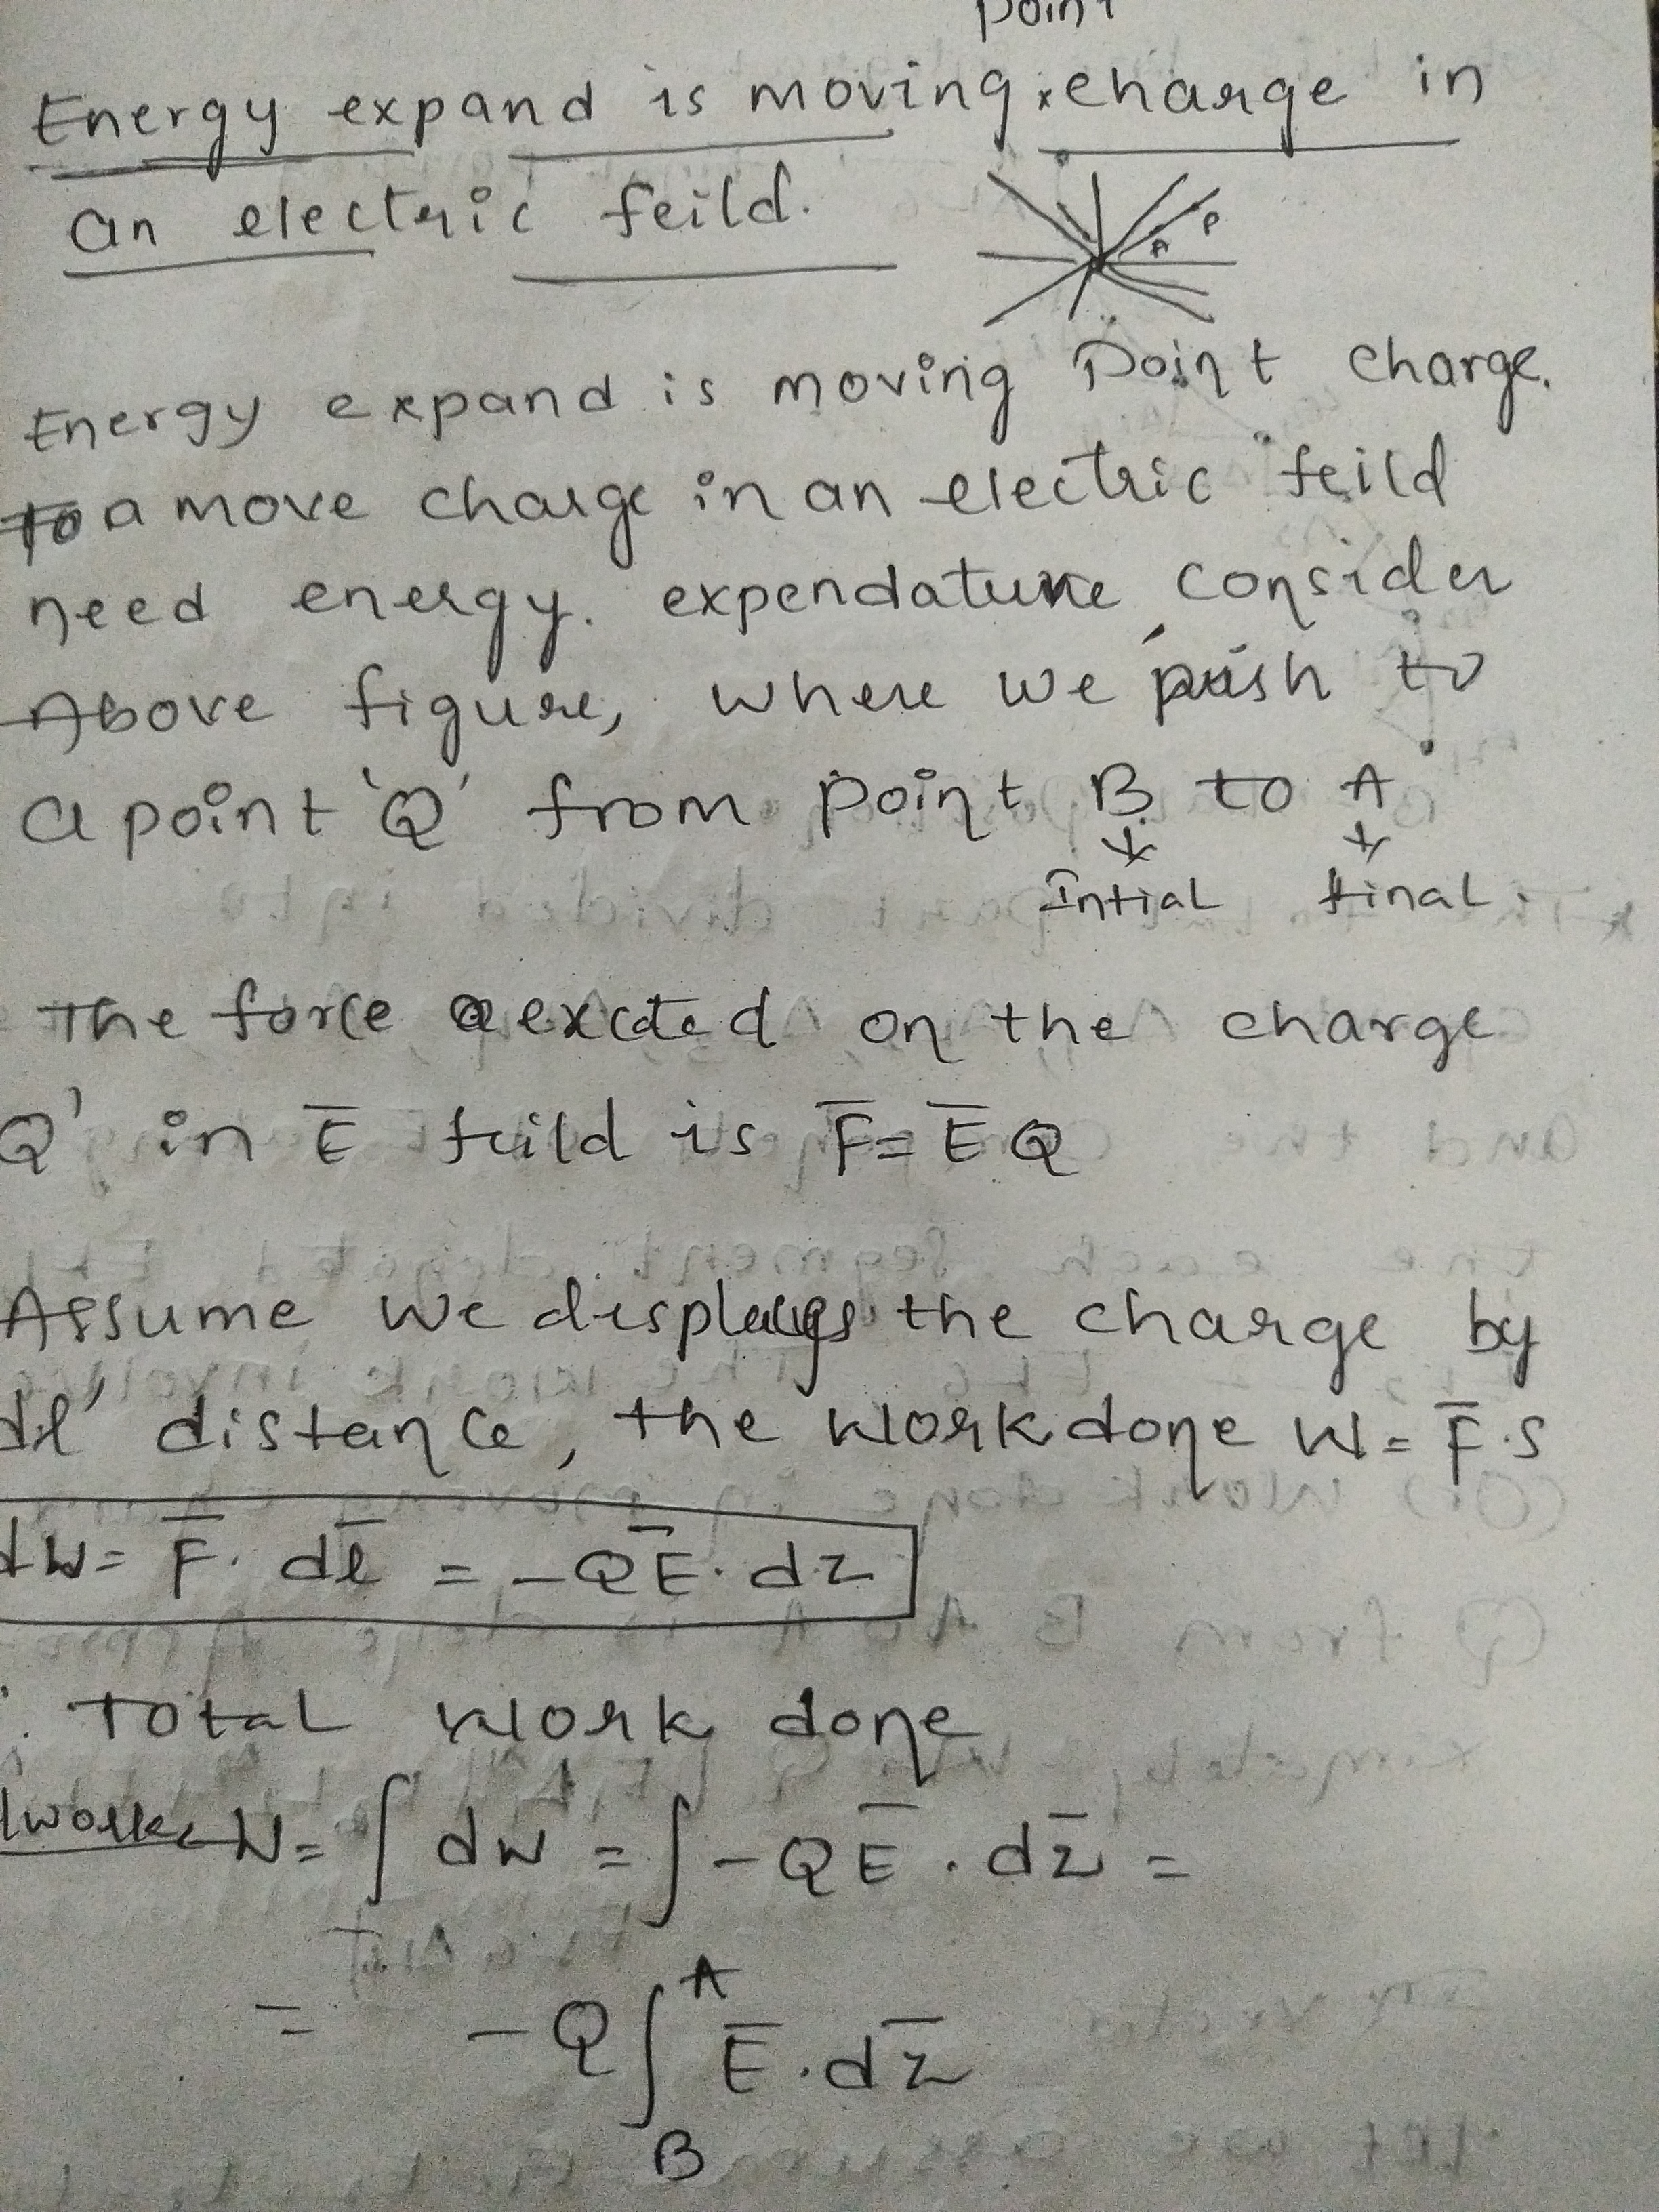 point
Energy expand is moving x charge in
an electric feild.
P
A
Energy expand is moving Point charge.
to a move charge in an electric feild
need energy. expendature consider
Above figure, where we push to
a point 'Q' from point B to A
Intial final.
The force exected on the charge
Q' in E̅ feild is F̅ = E̅ Q
Assume we the charge by
dl' distance, the work done W = F̅.S
dW = F̅. dl̅ = -QE̅. dz
∴ Total work done
W = ∫ dW = ∫ -QE̅ . dz̅ =
= -Q ∫ᴬ E̅ . dz̅
B